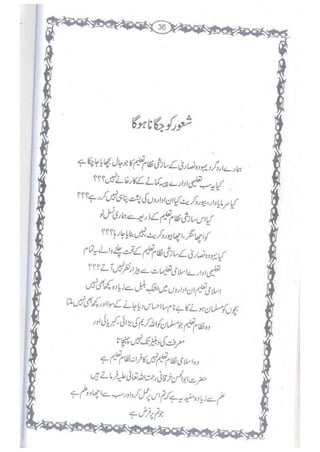 36
شعور کو جگانا ہوگا
ہمارے ارد گرد یہود و نصاریٰ کے سازشی نظام تعلیم کا جو جال بچھایا جا چکا ہے
کیا یہ سب تعلیمی ادارے پیسہ کمانے کے کارخانے نہیں؟؟؟
کیا سرمایہ دار، بیوروکریٹ کیا ان اداروں کی پشت پناہی نہیں کر رہے؟؟؟
کیا اس سازشی نظام تعلیم کے ذریعہ سے ہماری نسل نو
کو اچھا سنگر، اچھا بیوروکریٹ نہیں بنایا جا رہا؟؟؟
کیا یہود و نصاریٰ کے سازشی نظام تعلیم کے تحت چلنے والے یہ تمام
تعلیمی ادارے اسلامی تعلیمات سے بیزار نظر نہیں آتے؟؟؟
اسلامی تعلیم ان اداروں میں فقط لیبل سے زیادہ کچھ بھی نہیں
بچوں کو مسلمان ہونے کا بے نام سا احساس دیا جانے کے سوا اور کچھ بھی نہیں ملتا
وہ نظام تعلیم جو مسلمان کو اللہ کریم کی بڑائی، کبریائی اور
معرفت کی دہلیز تک نہیں پہنچاتا
وہ اسلامی نظام تعلیم نہیں کافرانہ نظام تعلیم ہے
حضرت ابو الحسن خرقانی رحمتہ اللہ تعالیٰ علیہ فرماتے ہیں
علم سے زیادہ مفید یہ ہے کہ تم اس پر عمل کرو اور سب سے اچھا وہ علم ہے
جو تم پر فرض ہے